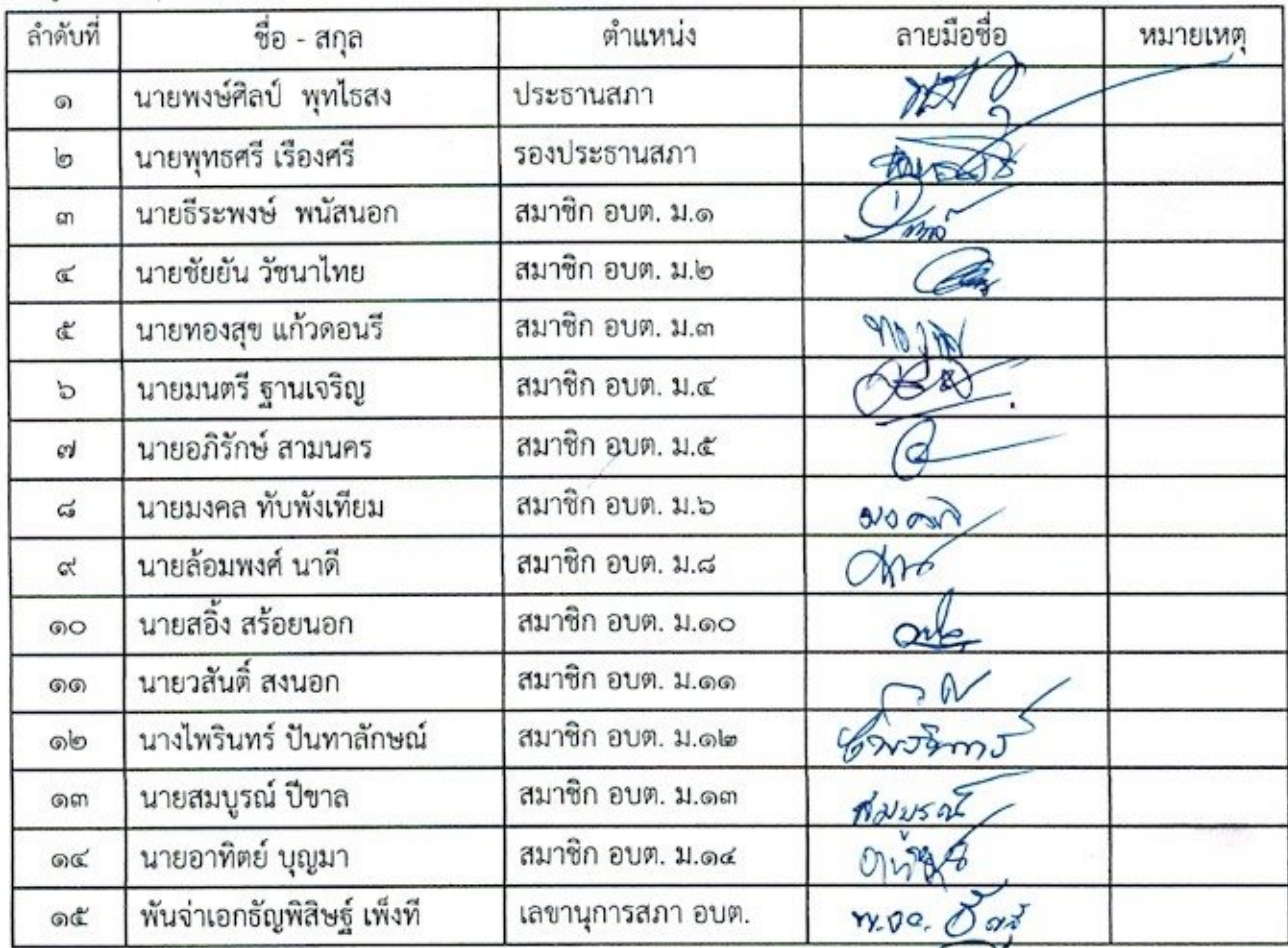 ลำดับที่ ชื่อ - สกุล ตำแหน่ง ลายมือชื่อ หมายเหตุ
๑ นายพงษ์ศิลป์ พุทไธสง ประธานสภา
๒ นายพุทธศรี เรืองศรี รองประธานสภา
๓ นายธีระพงษ์ พนัสนอก สมาชิก อบต. ม.๑
๔ นายชัยยัน วัชนาไทย สมาชิก อบต. ม.๒
๕ นายทองสุข แก้วดอนรี สมาชิก อบต. ม.๓
๖ นายมนตรี ฐานเจริญ สมาชิก อบต. ม.๔
๗ นายอภิรักษ์ สามนคร สมาชิก อบต. ม.๕
๘ นายมงคล ทับพังเทียม สมาชิก อบต. ม.๖ มงคล
๙ นายล้อมพงศ์ นาดี สมาชิก อบต. ม.๘
๑๐ นายสอิ้ง สร้อยนอก สมาชิก อบต. ม.๑๐
๑๑ นายวสันติ์ สงนอก สมาชิก อบต. ม.๑๑
๑๒ นางไพรินทร์ ปันทาลักษณ์ สมาชิก อบต. ม.๑๒
๑๓ นายสมบูรณ์ ปีขาล สมาชิก อบต. ม.๑๓ สมบูรณ์
๑๔ นายอาทิตย์ บุญมา สมาชิก อบต. ม.๑๔
๑๕ พันจ่าเอกธัญพิสิษฐ์ เพ็งที เลขานุการสภา อบต. พ.จอ.